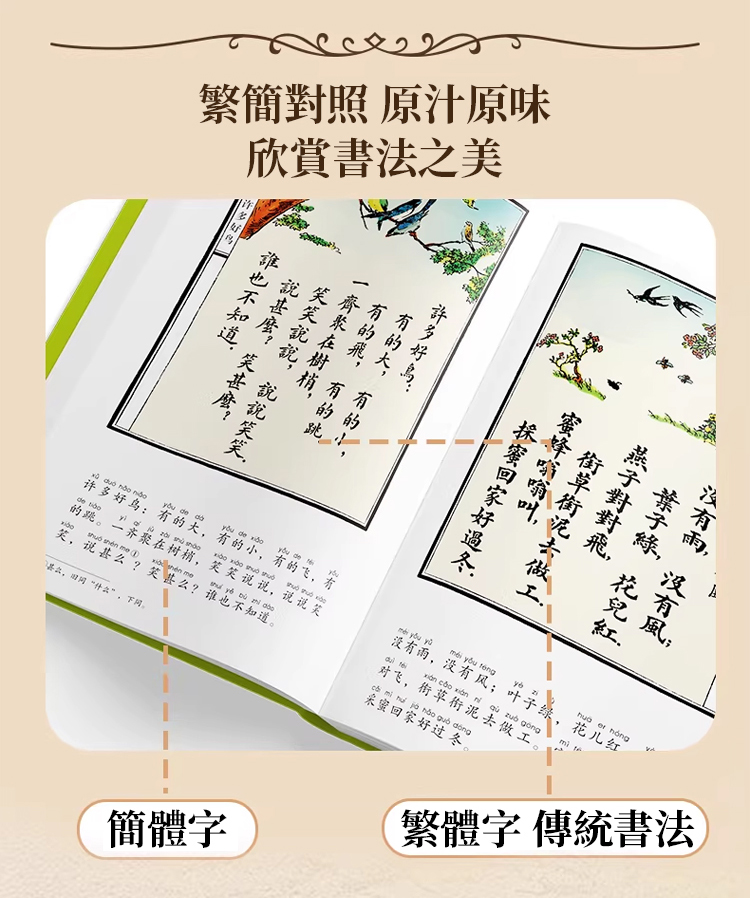 繁簡對照 原汁原味
欣賞書法之美
许多好鸟
許多好鳥:
有的大, 有的小,
有的飛, 有的跳.
一齊聚在樹梢,
笑笑說說, 說說笑笑.
說甚麼? 笑甚麼?
誰也不知道.
xǔ duō hǎo niǎo yǒu de dà yǒu de xiǎo yǒu de fēi yǒu
许多好鸟：有的大，有的小，有的飞，有
de tiào yì qí jù zài shù shāo xiào xiào shuō shuō shuō shuō xiào
的跳。一齐聚在树梢，笑笑说说，说说笑
xiào shuō shén me ① xiào shén me shuí yě bù zhī dào
笑，说甚么？笑甚么？谁也不知道。
甚么，旧同“什么”，下同。
沒有雨,
葉子綠, 沒有風,
燕子對對飛, 花兒紅.
銜草銜泥去做工.
蜜蜂嗡嗡叫,
採蜜回家好過冬.
méi yǒu yǔ méi yǒu fēng yè zi huā ér hóng
没有雨，没有风；叶子绿，花儿红
duì fēi xián cǎo xián ní qù zuò gōng mì
对飞，衔草衔泥去做工。
cǎi mì huí jiā hǎo guò dōng
采蜜回家好过冬。
簡體字
繁體字 傳統書法